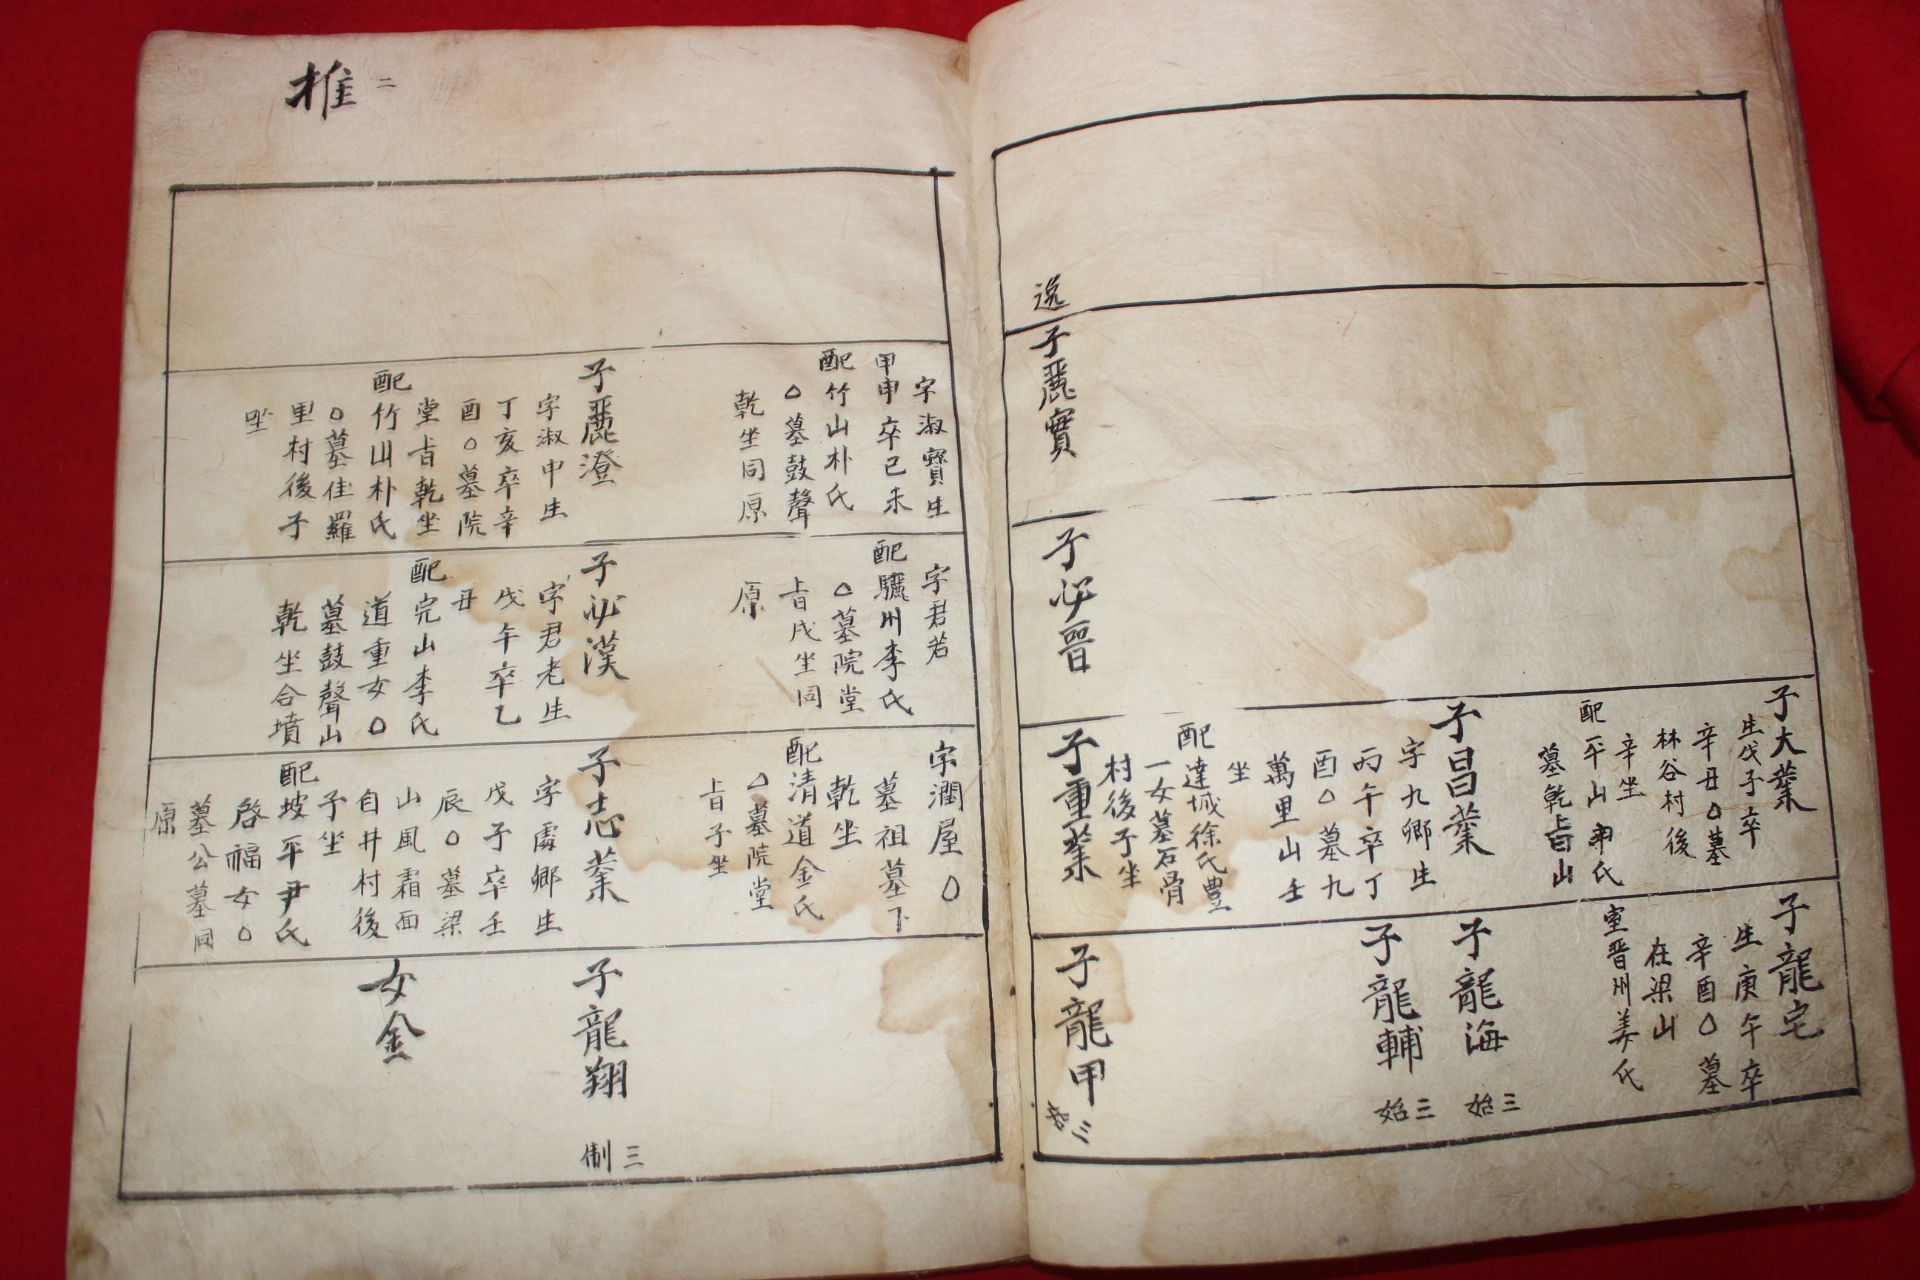 逸
子麗實
子必晉
子大業
生戊子卒
辛丑○墓
林谷村後
辛坐
配平山申氏
墓乾㫖山
子昌業
字九鄉生
丙午卒丁
酉○墓九
萬里山壬
坐
配達城徐氏豊
一女墓石骨
村後子坐
子重業
子龍宅
生庚午卒
辛酉○墓
在梁山
室晋州姜氏
子龍海
三始
子龍輔
三始
子龍甲
三
二
推
字淑寶生
甲申卒己未
配竹山朴氏
○墓鼓聲
乾坐同原
子麗澄
字淑中生
丁亥卒辛
酉○墓院
堂㫖乾坐
配竹山朴氏
○墓佳羅
里村後子
坐
字君若
配驪州李氏
○墓院堂
㫖戌坐同
原
子必漢
字君老生
戊午卒乙
丑
配完山李氏
道重女○
墓鼓聲山
乾坐合墳
字潤屋○
墓祖墓下
乾坐
配清道金氏
○墓院堂
㫖子坐
子志業
字處鄉生
戊子卒壬
辰○墓梁
山風霜面
自井村後
子坐
配坡平尹氏
啓福女○
墓公墓同
原
子龍翔
三制
女金